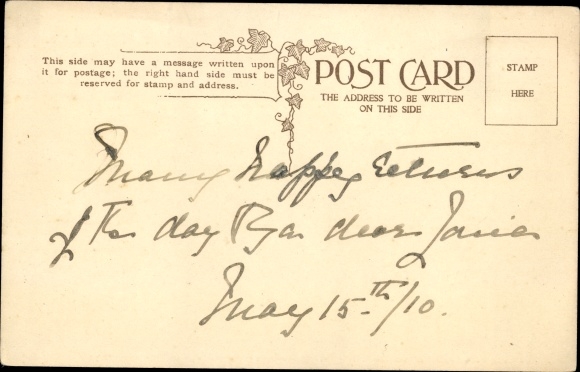 This side may have a message written upon
it for postage; the right hand side must be
reserved for stamp and address.
POST CARD
THE ADDRESS TO BE WRITTEN
ON THIS SIDE
STAMP
HERE
Many happy returns
of the day dear
May 15th/10.